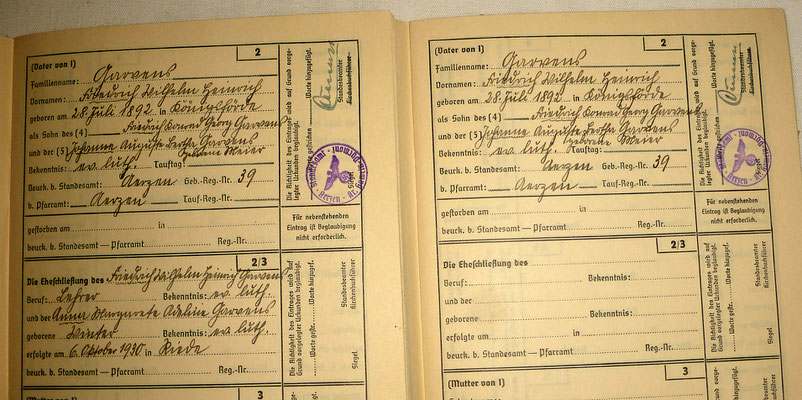 (Vater von 1) 2
Familienname: Garvens
Vornamen: Friedrich Wilhelm Heinrich
geboren am 28. Juli 1892 in Königsförde
als Sohn des (4) Friedrich Konrad Georg Garvens
und der (5) Johanne Auguste Bertha Garvens
geborene Meier
Bekenntnis: ev. luth. Tauftag:
Beurk. b. Standesamt: Aerzen Geb.-Reg.-Nr. 39
b. Pfarramt: Aerzen Tauf-Reg.-Nr.
gestorben am in
beurk. b. Standesamt — Pfarramt Reg.-Nr.
Die Richtigkeit des Eintrages wird auf Grund vorge-
legter Urkunden beglaubigt.
Worte hinzugefügt.
gestrichen
Standesbeamter
Kirchenbuchführer
Siegel
Für nebenstehenden
Eintrag ist Beglaubigung
nicht erforderlich.
2/3
Die Eheschließung des Friedrich Wilhelm Heinrich Garvens
Beruf: Lehrer Bekenntnis: ev. luth.
und der Anna Margarete Adeline Garvens
geborene Winter Bekenntnis: ev. luth.
erfolgte am 6. Oktober 1930 in Riede
beurk. b. Standesamt — Pfarramt Reg.-Nr.
Die Richtigkeit des Eintrages wird auf
Grund vorgelegter Urkunden beglaubigt.
Worte hinzugef.
Worte gestr.
Standesbeamter
Kirchenbuchführer
Siegel
(Mutter von 1) 3
(Vater von 1) 2
Familienname: Garvens
Vornamen: Friedrich Wilhelm Heinrich
geboren am 28. Juli 1892 in Königsförde
als Sohn des (4) Friedrich Konrad Georg Garvens
und der (5) Johanne Auguste Bertha Garvens
geborene Meier
Bekenntnis: ev. luth. Tauftag:
Beurk. b. Standesamt: Aerzen Geb.-Reg.-Nr. 39
b. Pfarramt: Aerzen Tauf-Reg.-Nr.
gestorben am in
beurk. b. Standesamt — Pfarramt Reg.-Nr.
Die Richtigkeit des Eintrages wird auf Grund vorge-
legter Urkunden beglaubigt.
Worte hinzugefügt.
Standesbeamter
Kirchenbuchführer
Siegel
Für nebenstehenden
Eintrag ist Beglaubigung
nicht erforderlich.
2/3
Die Eheschließung des
Beruf: Bekenntnis:
und der
geborene Bekenntnis:
erfolgte am in
beurk. b. Standesamt — Pfarramt Reg.-Nr.
Die Richtigkeit des Eintrages wird auf
Grund vorgelegter Urkunden beglaubigt.
Worte hinzugef.
Worte gestr.
Standesbeamter
Kirchenbuchführer
Siegel
(Mutter von 1) 3